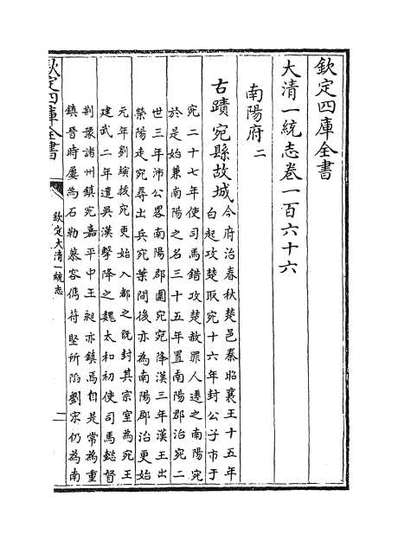 欽定四庫全書
大清一統志卷一百六十六
南陽府二
古蹟宛縣故城今府治春秋楚邑秦昭襄王十五年
白起攻楚取宛十六年封公子市于
宛二十七年使司馬錯攻楚赦罪人遷之南陽宛
於是始兼南陽之名三十五年置南陽郡治宛二
世三年沛公畧南陽郡圍宛宛降漢三年漢王出
滎陽走宛尋出兵宛葉間後亦為南陽郡治更始
元年劉縯拔宛更始入都之既封其宗室為宛王
建武二年遣吳漢擊降之魏太和初使司馬懿督
荆豫諸州鎮宛嘉平中王昶亦鎮焉自是常為重
鎮晉時屢為石勒慕容儁苻堅所陷劉宋仍為南
欽定四庫全書
欽定大清一統志
一